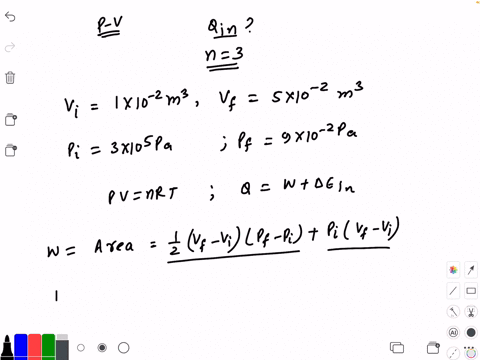 P-V Qin ?
n=3
Vi = 1×10⁻² m³, Vf = 5×10⁻² m³
Pi = 3×10⁵ Pa ; Pf = 9×10⁻² Pa
PV = nRT ; Q = W + ΔEIn
W = Area = 1/2 (Vf – Vi) (Pf – Pi) + Pi (Vf – Vi)